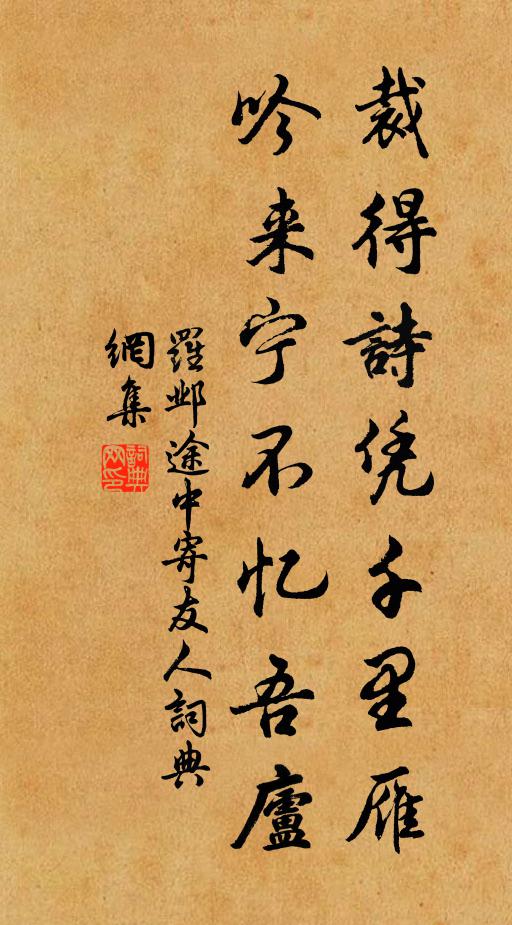 裁得詩凭千里雁
吟来宁不忆吾廬
羅邺途中寄友人詞典
網集
詞典
网印